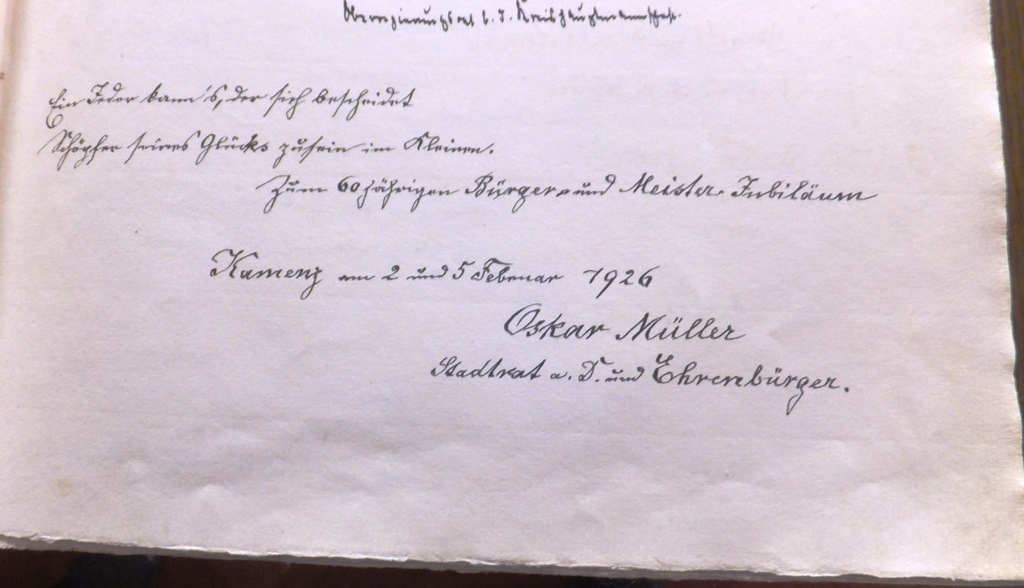 Oberregierungsrat b. d. Kreishauptmannschaft.
Ein Jeder kann's, der sich bescheidet
Schöpfer seines Glücks zu sein im Kleinen.
Zum 60 jährigen Bürger- und Meister-Jubiläum
Kamenz am 2 und 5 Februar 1926
Oskar Müller
Stadtrat a. D. und Ehrenbürger.